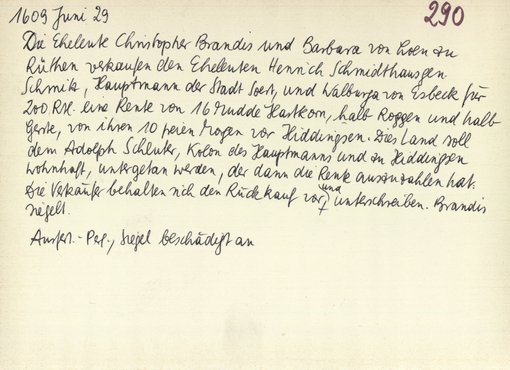 1609 Juni 29
290
Die Eheleute Christopher Brandis und Barbara von Loen zu
Rüthen verkaufen den Eheleuten Henrich Schmidthausgen
Schmitz, Hauptmann der Stadt Soest, und Walburga von Esbeck für
200 Rtl. eine Rente von 16 Mudde Hartkorn, halb Roggen und halb
Gerste, von ihren 10 freien Morgen vor Hiddingsen. Dies Land soll
dem Adolph Schluter, Kolon des Hauptmanns und zu Hiddingsen
wohnhaft, untergetan werden, der dann die Rente auszuzahlen hat.
Die Verkäufer behalten sich den Rückkauf vor und unterschreiben. Brandis
siegelt.
Ausfert.- Perg., Siegel beschädigt an